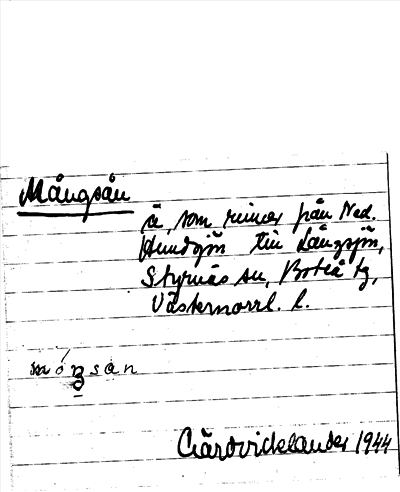 Mångsån
å, som rinner från Ned.
Hundsjön till Långsjön,
Styrnäs sn, Boteå tg,
Västernorrl. l.
Gärdvidelander 1944